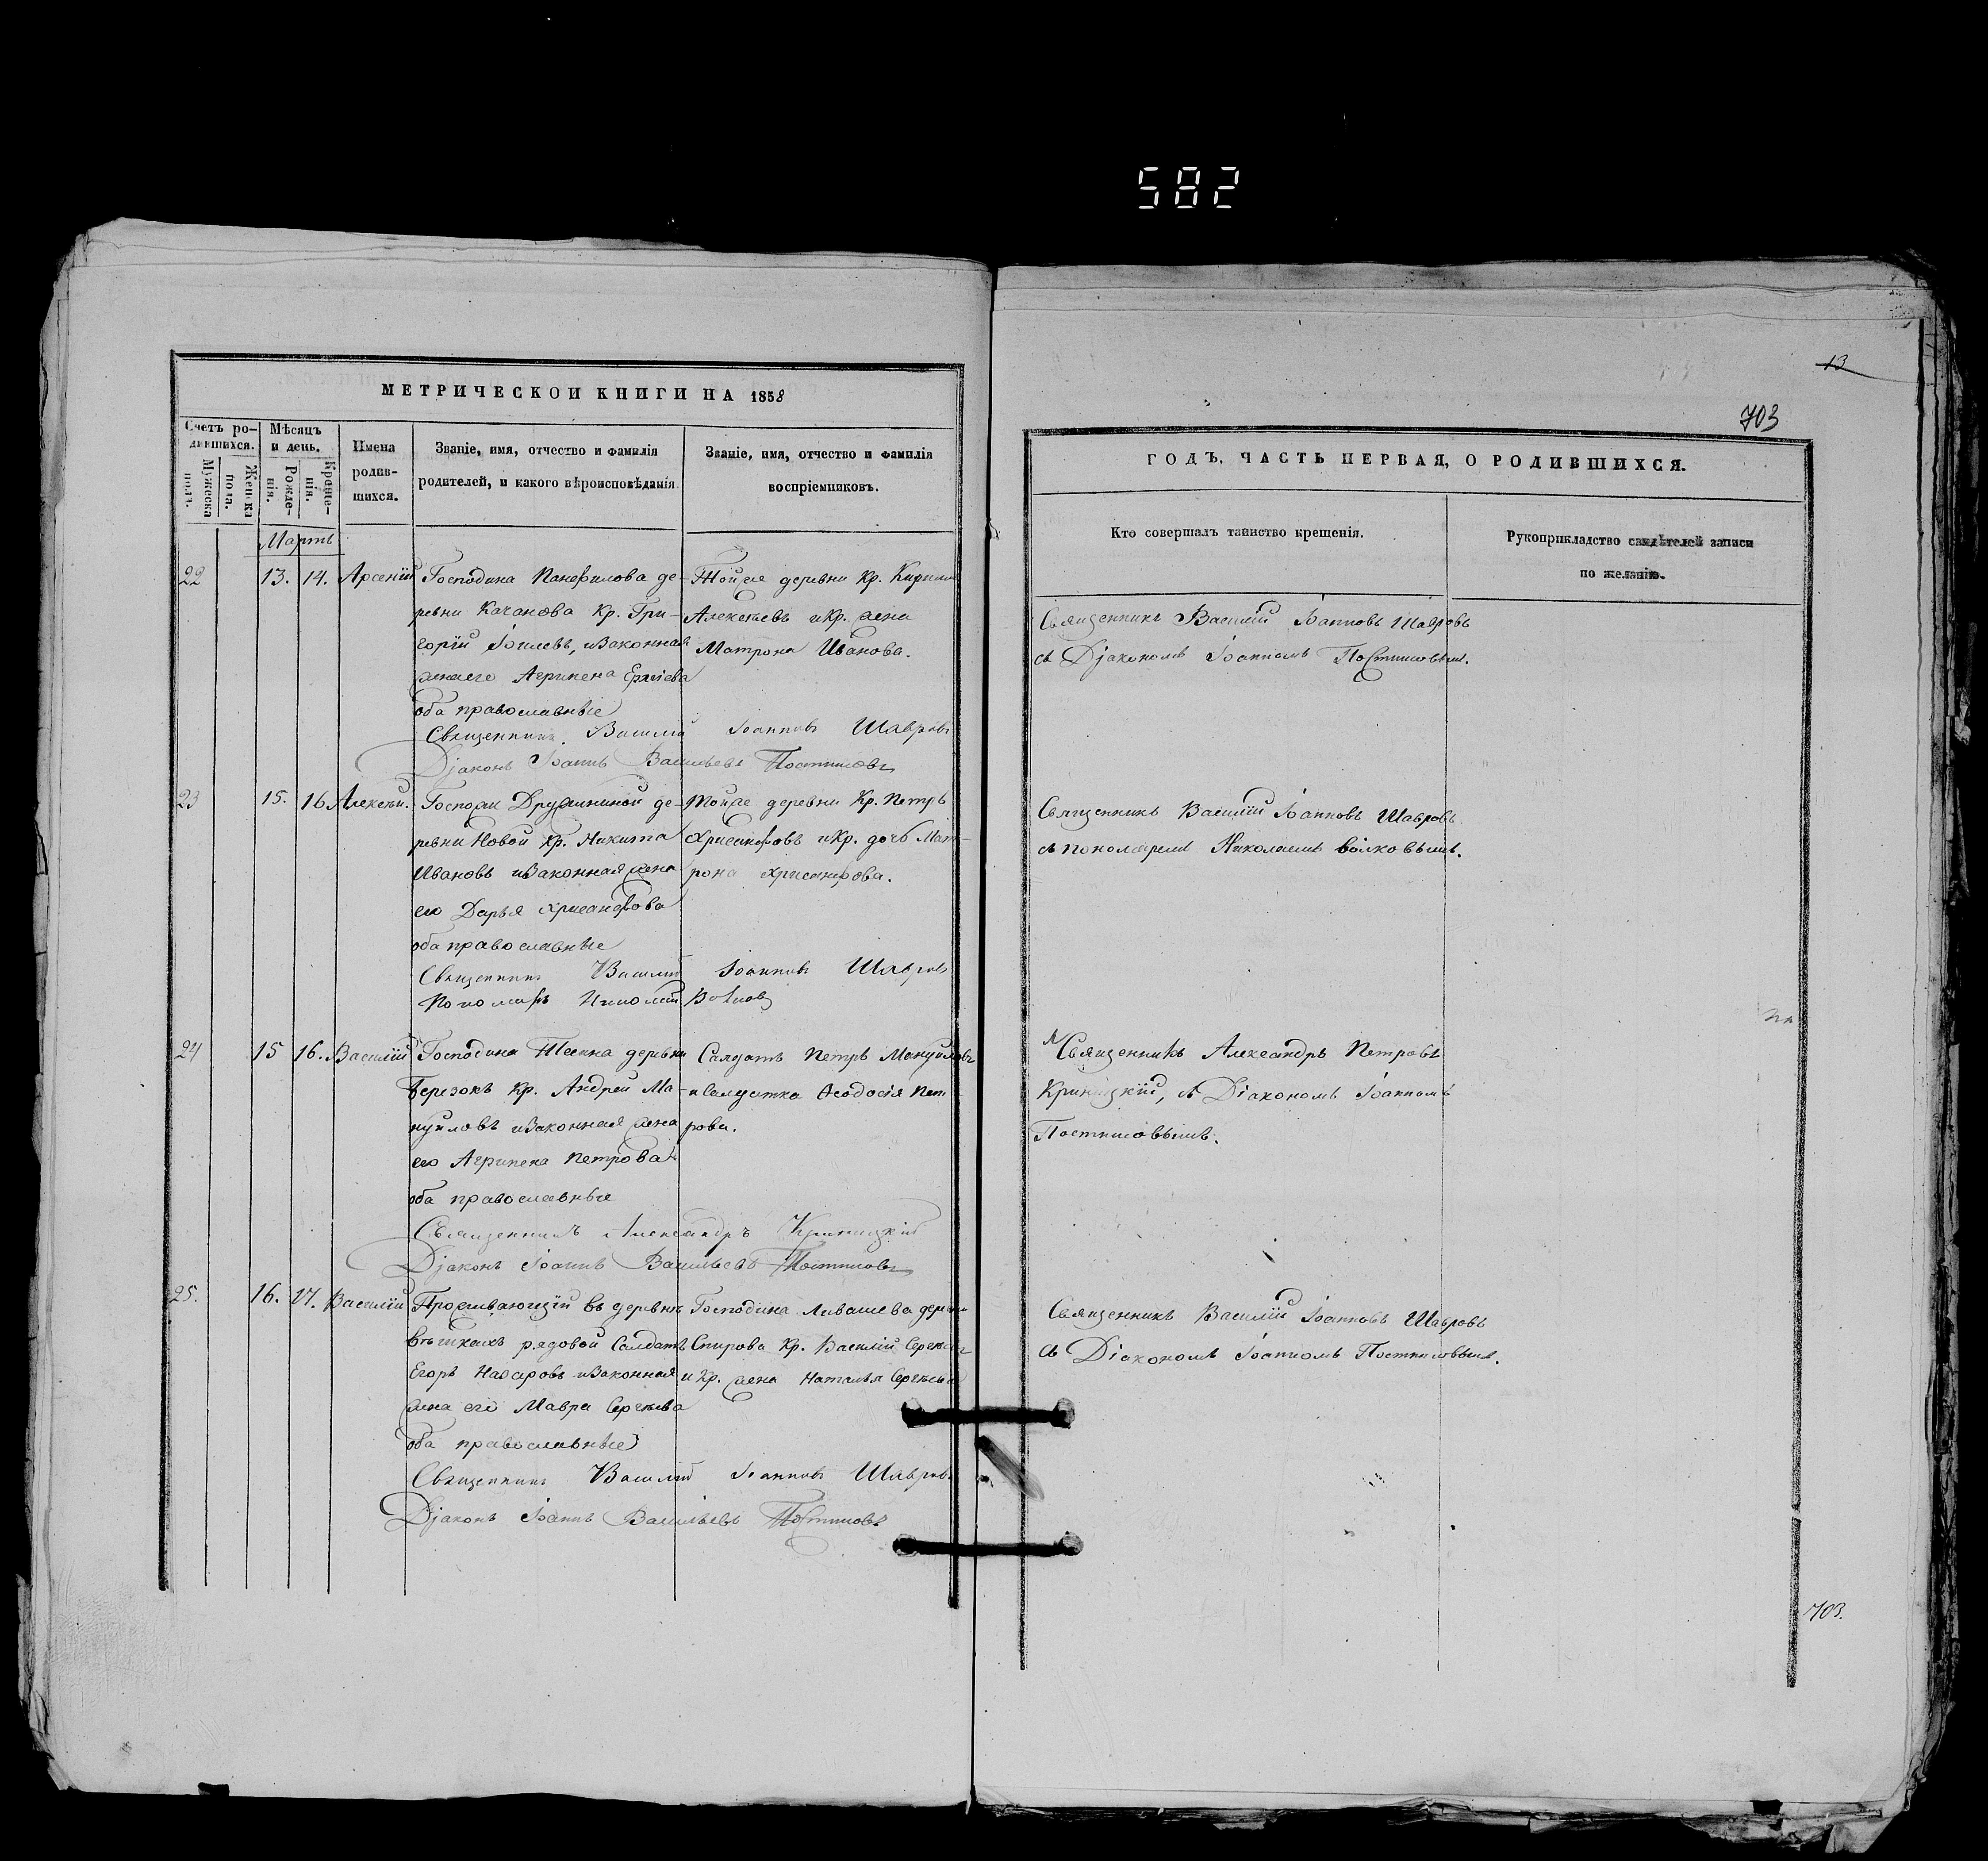 582
МЕТРИЧЕСКОЙ КНИГИ НА 1858
Счетъ ро-
дившихся.
Мужеска
пола.
Женска
пола.
Мѣсяцъ
и день.
Рожде-
нія.
Креще-
нія.
Имена
родив-
шихся.
Званіе, имя, отчество и фамилія
родителей, и какого вѣроисповѣданія
Званіе, имя, отчество и фамилія
воспріемниковъ.
Мартъ
22 13. 14. Арсеній
Господина Панфилова де-
ревни Качанова Кр. Гри-
горій, изаконная
женаего Агрипена
оба православные
Тойже деревни Кр.
Алексѣевъ иКр. жена
Матрона Иванова.
Священникъ Василій Іоанновъ Шавровъ
Діаконъ Іоаннъ Васильевъ Постниковъ
23 15. 16 Алексѣй.
Госпожи Дружининой де-
ревни Новой Кр. Никита
Ивановъ изаконная жена
его Дарья Хрисанфова
оба православные
Тойже деревни Кр. Петръ
Хрисанфовъ иКр. дочь Мат-
рона Хрисанфова.
Священникъ Василій Іоанновъ Шавровъ
Пономарь Николай Волковъ
24 15 16. Василій
Господина деревни
Березокъ Кр. Андрей Ма-
нуиловъ изаконная жена
его Агрипена Петрова
оба православные
Салдатъ Петръ Мануиловъ
иСалдатка Ѳеодосія Пет
рова.
Священникъ Александръ Криницкій
Діаконъ Іоаннъ Васильевъ Постниковъ
25. 16. 17. Василій
Проживающій въ деревнѣ
рядовой Салдатъ
Егоръ Назаровъ изаконная
жена его Мавра Сергѣева
оба православные
Господина Ливашева деревни
Спирова Кр. Василій Сергѣевъ
и Кр. жена Наталья Сергѣева
Священникъ Василій Іоанновъ Шавровъ
Діаконъ Іоаннъ Васильевъ Постниковъ
13
703
ГОДЪ, ЧАСТЬ ПЕРВАЯ, О РОДИВШИХСЯ.
Кто совершалъ таинство крещенія.
Рукоприкладство свидѣтелей записи
по желанію.
Священникъ Василій Іоанновъ Шавровъ
съ Діакономъ Іоанномъ Постниковымъ.
Священникъ Василій Іоанновъ Шавровъ
съ пономаремъ Николаемъ Волковымъ.
Священникъ Александръ Петровъ
Криницкій, съ Діакономъ Іоанномъ
Постниковымъ.
Священникъ Василій Іоанновъ Шавровъ
съ Діакономъ Іоанномъ Постниковымъ.
703.